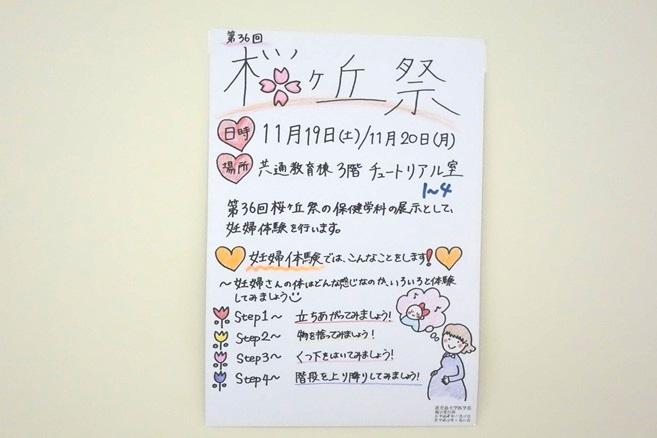 第36回
桜ヶ丘祭
日時 11月19日(土)/11月20日(月)
場所 共通教育棟 3階 チュートリアル室
1~4
第36回桜ヶ丘祭の保健学科の展示として、
妊婦体験を行います。
妊婦体験では、こんなことをします!
~妊婦さんの体はどんな感じなのか、いろいろと体験
してみましょう
Step1~ 立ちあがってみましょう!
Step2~ 物を拾ってみましょう!
Step3~ くつ下をはいてみましょう!
Step4~ 階段を上り降りしてみましょう!